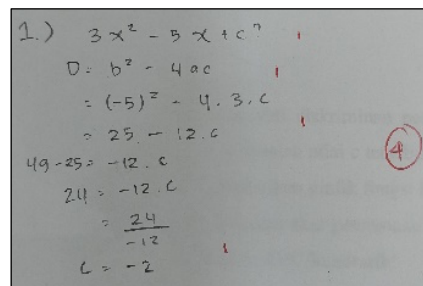 1.) 3x² - 5x + c?
D = b² - 4ac
= (-5)² - 4.3.c
= 25 - 12.c
49-25 = -12.c
24 = -12.c
= 24/-12
c = -2
4